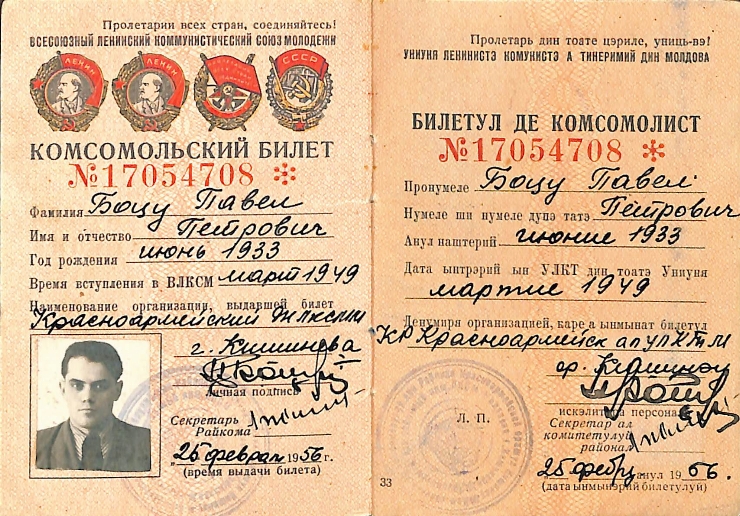 Пролетарии всех стран, соединяйтесь!
ВСЕСОЮЗНЫЙ ЛЕНИНСКИЙ КОММУНИСТИЧЕСКИЙ СОЮЗ МОЛОДЕЖИ
ЛЕНИН
ЛЕНИН
СССР
КОМСОМОЛЬСКИЙ БИЛЕТ
№17054708 *
Фамилия Боцу Павел
Имя и отчество Петрович
Год рождения июнь 1933
Время вступления в ВЛКСМ март 1949
Наименование организации, выдавшей билет
Красноармейский
г. Кишинева
Личная подпись
Секретарь
Райкома
„25 февраля 1956 г.
(время выдачи билета)
Пролетарь дин тоате цэриле, униць-вэ!
УНИУНЯ ЛЕНИНИСТЭ КОМУНИСТЭ А ТИНЕРИМИЙ ДИН МОЛДОВА
БИЛЕТУЛ ДЕ КОМСОМОЛИСТ
№17054708 *
Пронумеле Боцу Павел
Нумеле ши нумеле дупэ татэ Петрович
Анул наштерий июние 1933
Дата ынтрэрий ын УЛКТ дин тоатэ Униуня
мартие 1949
Денумиря организацией, каре а ынмынат билетул
КР Красноармейск а
ор. Кишинэу
Л. П.
искэлитура персоналэ
Секретар ал
комитетулуй
районал
„25 фебр. анул 1956.
(дата ынмынэрий билетулуй)
33